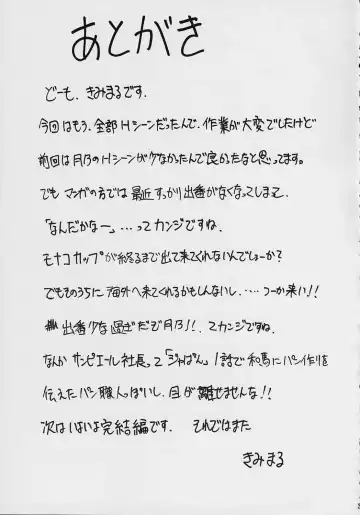 あとがき
どーも、きみまるです.
今回はもう、全部Hシーンだったんで、作業が大変でしたけど
前回は月乃のHシーンが少なかったんで良かったなと思ってます.
でもマンガの方では最近すっかり出番がなくなってしまって、
「なんだかなー」…ってカンジですね.
モナコカップが終るまで出て来てくれないんでしょーか?
でもそのうちに海外へ来てくれるかもしんないし、…. つーか来い!!
出番少な過ぎだぞ月乃!!. てカンジですね.
なんかサンピエール社長って「ジャぱん」1話で和馬にパン作りを
伝えたパン職人っぽいし、目が離せませんな!!
次はいよいよ完結編です. それではまた
きみまる